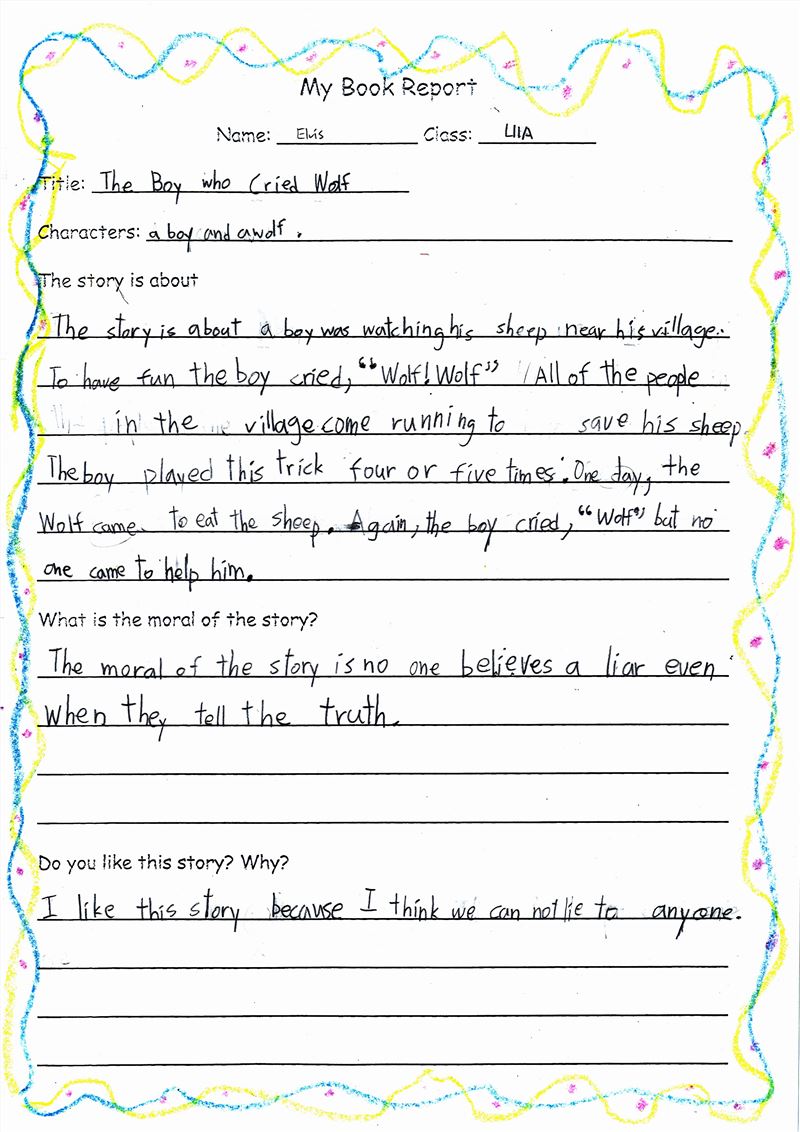 My Book Report
Name: Elvis Class: L11A
Title: The Boy who Cried Wolf
Characters: a boy and a wolf.
The story is about
The story is about a boy was watching his sheep near his village.
To have fun the boy cried, "Wolf! Wolf" All of the people
in the village come running to save his sheep.
The boy played this trick four or five times. One day, the
Wolf came to eat the sheep. Again, the boy cried, "Wolf" but no
one came to help him.
What is the moral of the story?
The moral of the story is no one believes a liar even
when they tell the truth.
Do you like this story? Why?
I like this story because I think we can not lie to anyone.